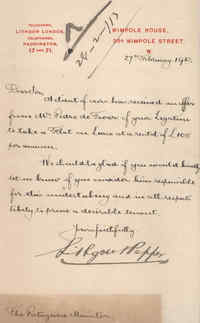 TELEGRAMS,
LITHGOW LONDON.
TELEPHONE,
PADDINGTON,
WIMPOLE HOUSE,
WIMPOLE STREET,
W
28-2-/13
27th February 191
Dear Sir,
A client of ours has received an offer
from Mr Pedro de Tovar of your Legation
to take a Flat on lease at a rental of £100
per annum.
We should be glad if you would kindly
let us know if you consider him responsible
for this undertaking and in all respects
likely to prove a desirable tenant.
Yours faithfully
The Portuguese Minister